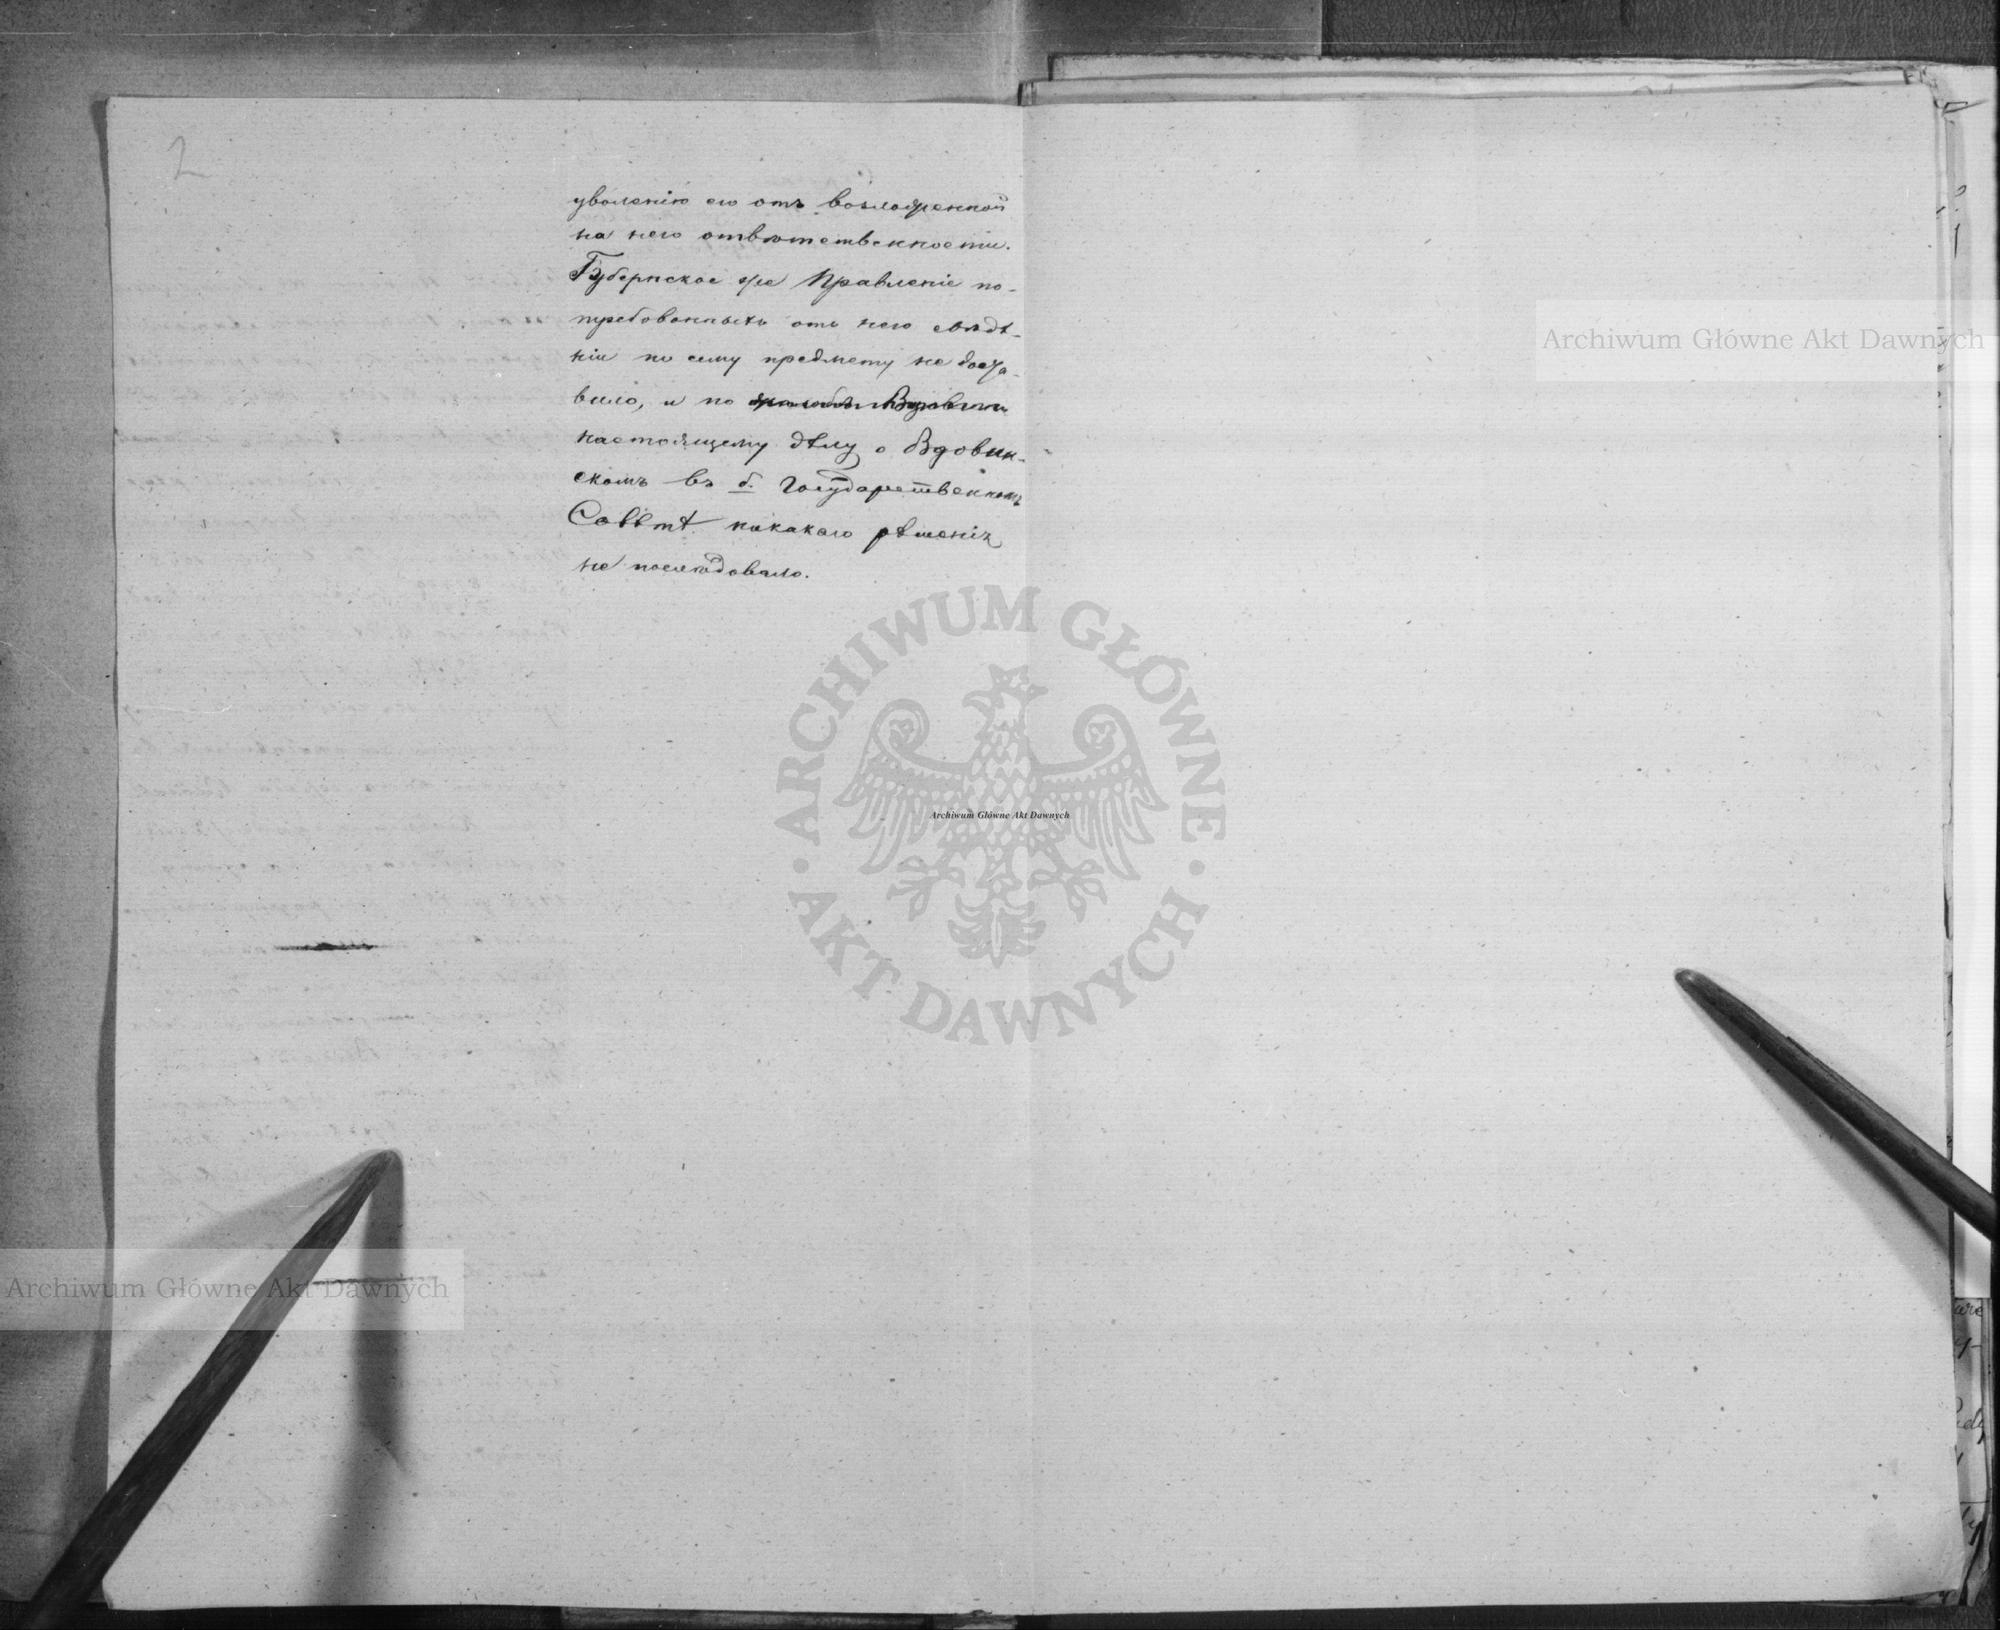 2
уволенію его отъ возложенной
на него отвѣтственности.
Губернское же Правленіе по-
требованныхъ отъ него свѣдѣ-
ній по сему предмету не доста-
вило, и по жалобѣ
настоящему дѣлу о Вдовин-
скомъ въ б. Государственномъ
Совѣтѣ никакого рѣшенія
не послѣдовало.
Archiwum Główne Akt Dawnych
ARCHIWUM GŁÓWNE · AKT DAWNYCH ·
Archiwum Główne Akt Dawnych
Archiwum Główne Akt Dawnych